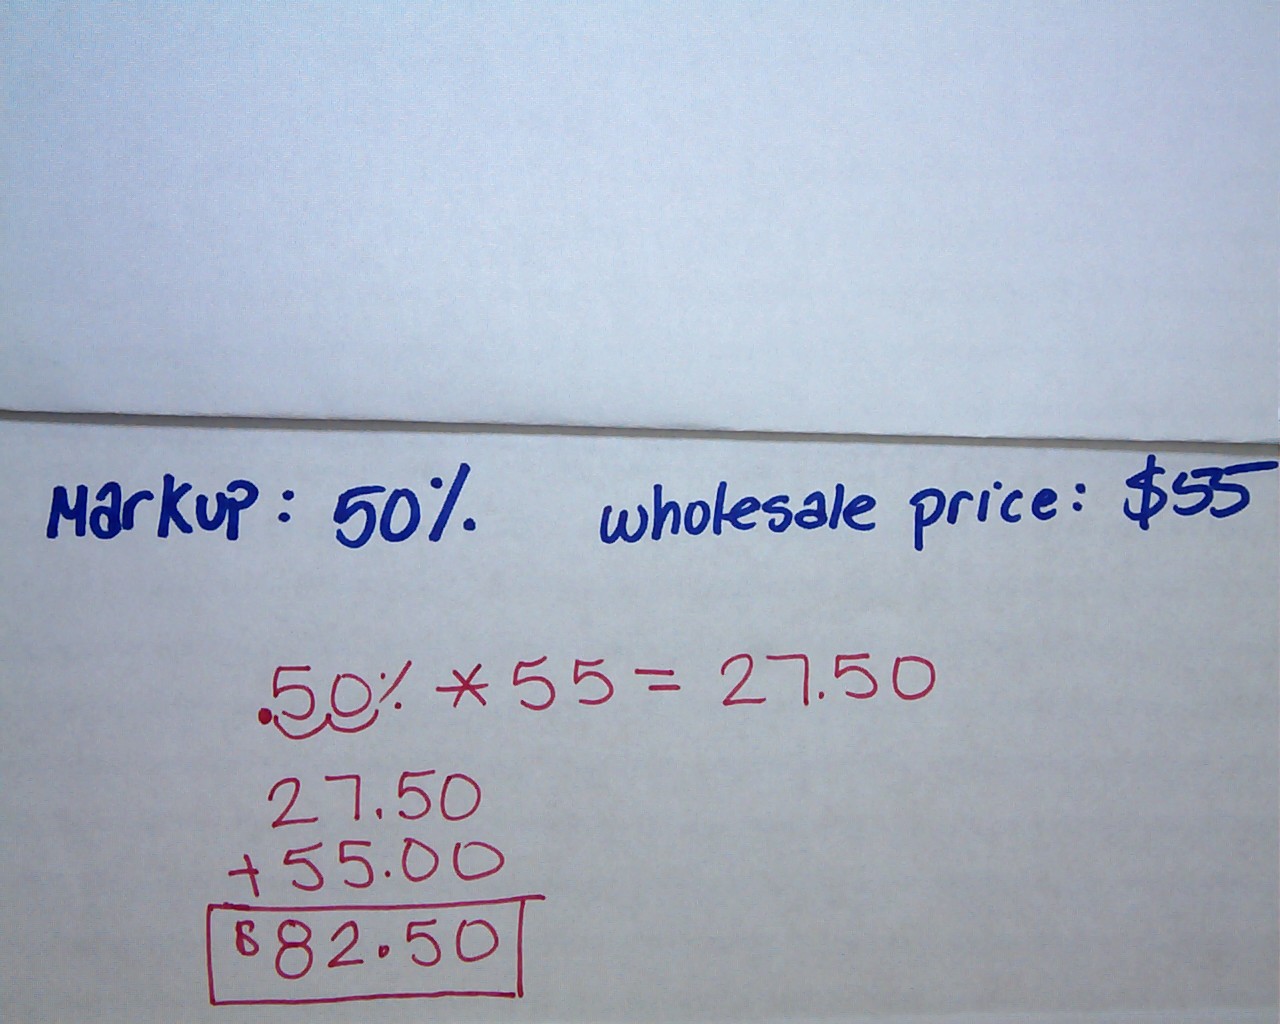 Markup: 50% wholesale price: $55
.50% * 55 = 27.50
27.50
+55.00
$82.50